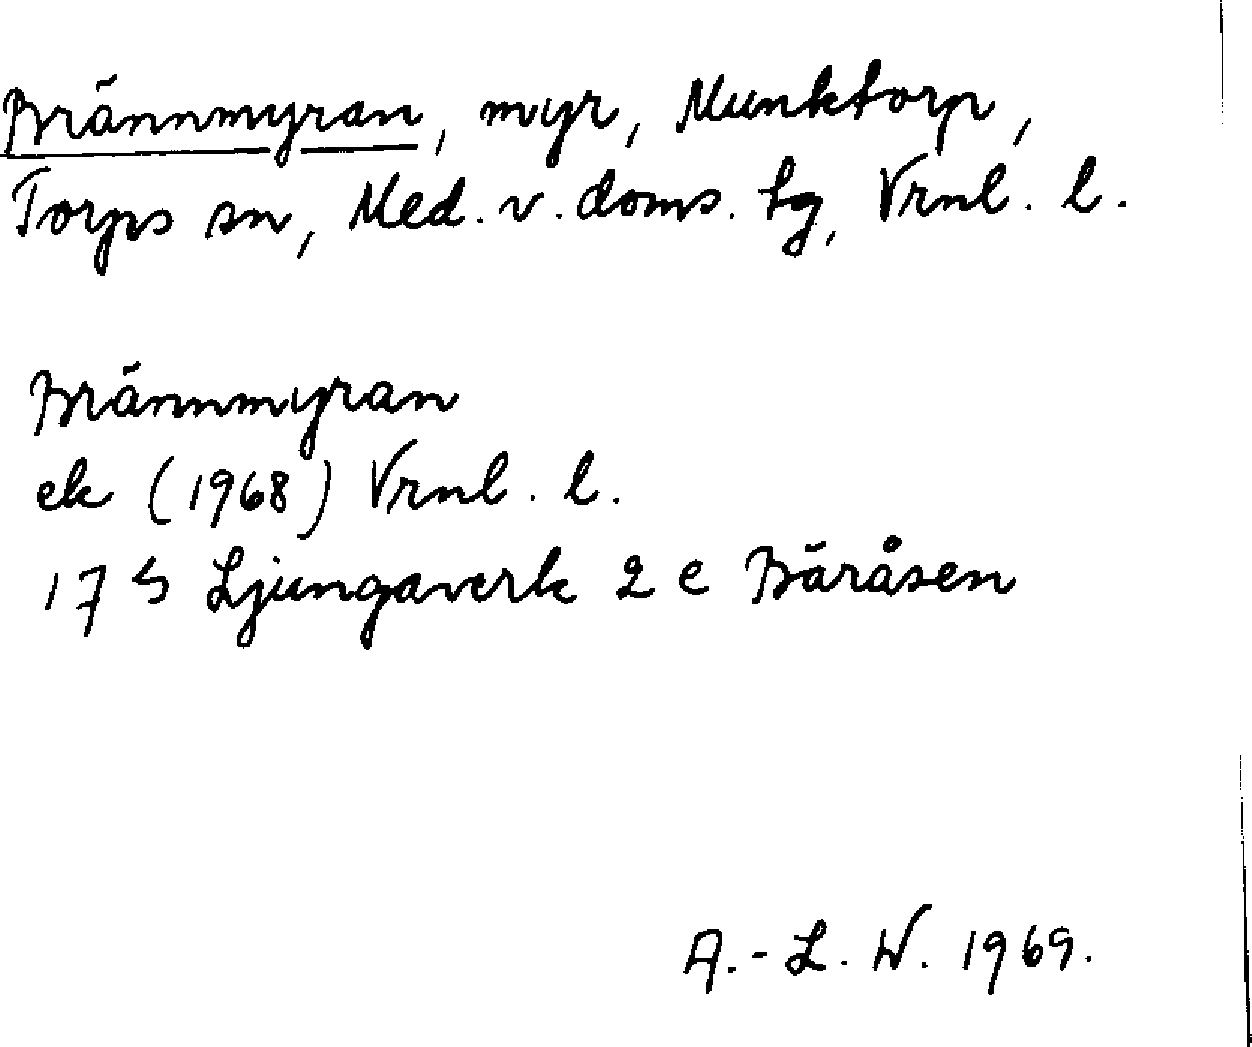 Brännmyran, myr, Munktorp,
Torps sn, Med. v. doms. tg, Vrnl. l.
Brännmyran
ek (1968) Vrnl. l.
17 S Ljungaverk 2 e Bäråsen
A.-L. W. 1969.